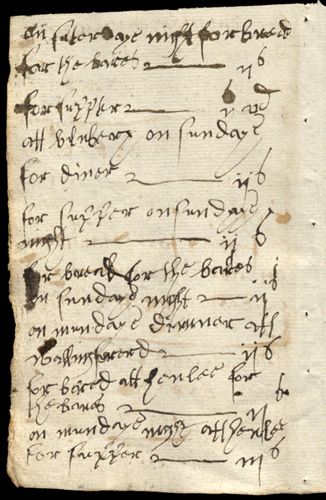 on saterdaye night for bread
for the bares — ii s
for supper — v s vi d
att Vlbery on sundaye
for diner — ii s
for supper on sundaye
night — ii s
for bread for the bares
on sundaye night — ii s
on mundaye dinnner att
Wallingford — ii s
for bread att henlee for
the bares — ii s
on mundaye night att henlee
for supper — iii s